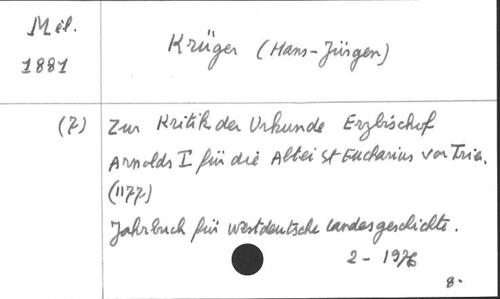 Mél.
1881
Krüger (Hans-Jürgen)
(7) Zur Kritik der Urkunde Erzbischof
Arnolds I für die Abtei St Eucharius vor Trier.
(1177)
Jahrbuch für westdeutsche landesgeschichte.
2 - 1976
8.